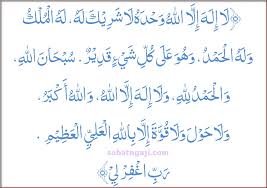 ﴿لَا إِلٰهَ إِلَّا اللهُ وَحْدَهُ لَا شَرِيْكَ لَهُ. لَهُ الْمُلْكُ
وَلَهُ الْحَمْدُ. وَهُوَ عَلَى كُلِّ شَيْءٍ قَدِيْرٌ. سُبْحَانَ اللهِ.
وَالْحَمْدُ لِلّٰهِ. وَلَا إِلٰهَ إِلَّا اللهُ. وَاللهُ أَكْبَرُ.
وَلَا حَوْلَ وَلَا قُوَّةَ إِلَّا بِاللهِ الْعَلِيِّ الْعَظِيْمِ.
sobatngaji.com
رَبِّ اغْفِرْ لِيْ﴾